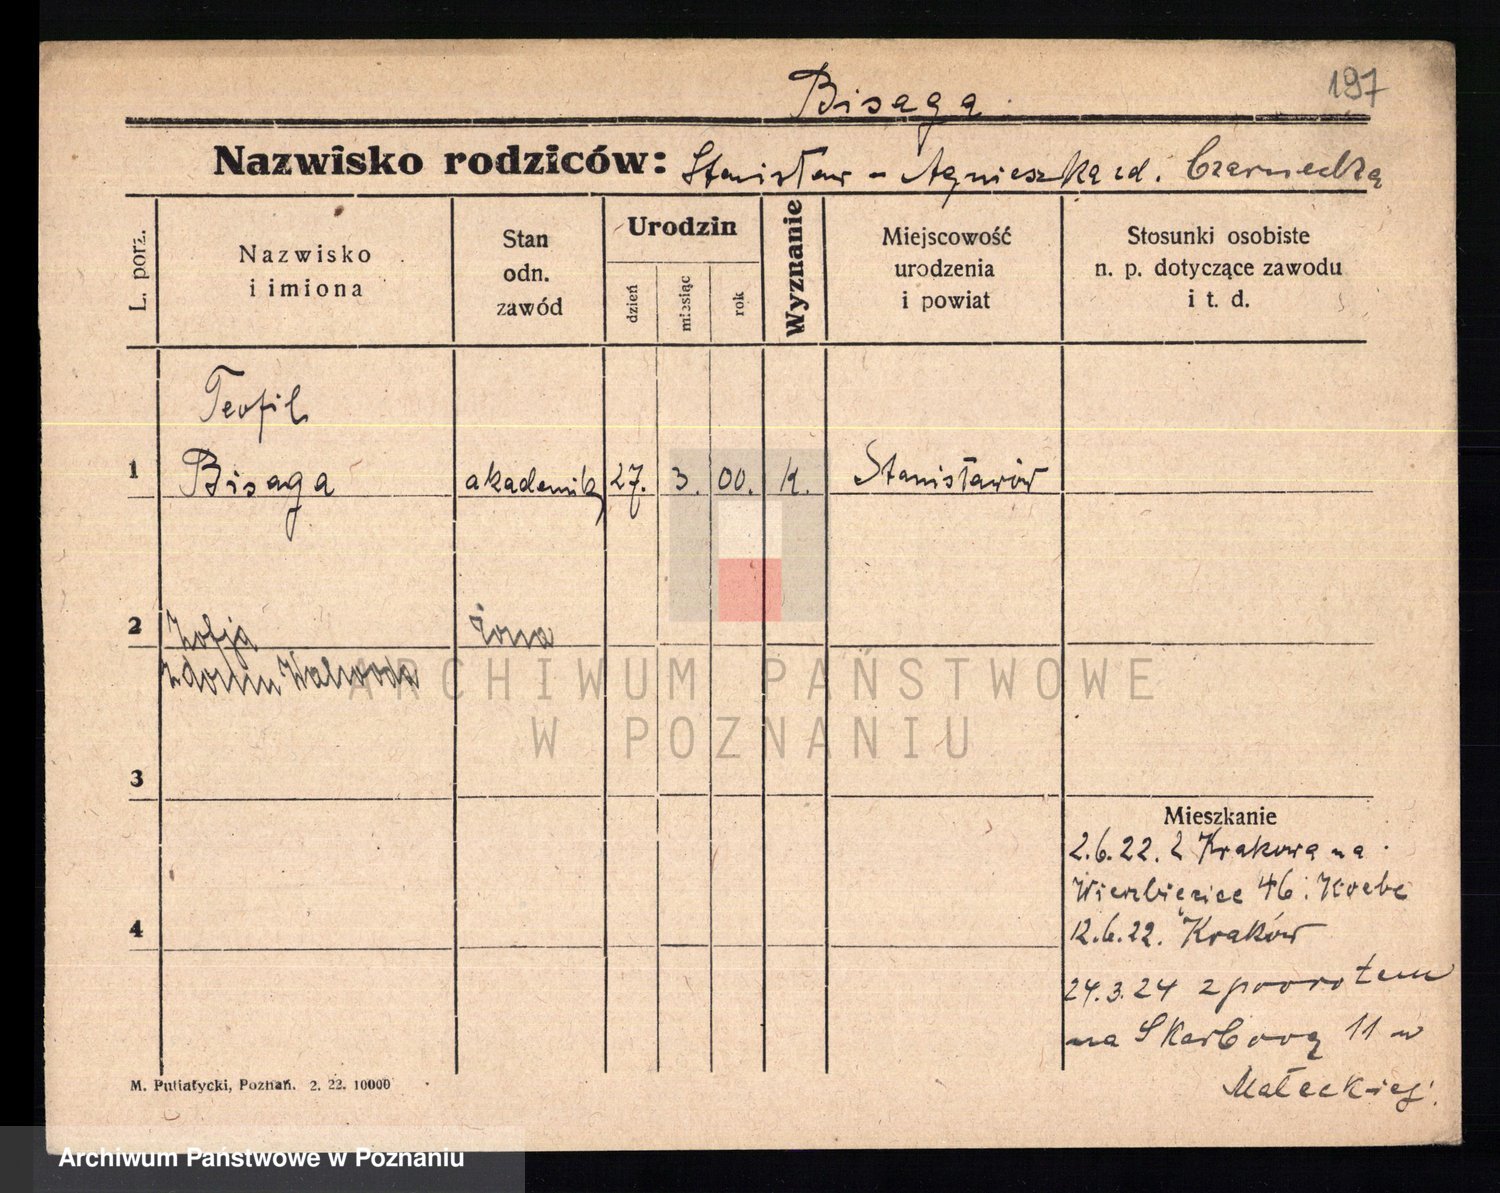 197
Bisaga
Nazwisko rodziców: Stanisław - Agnieszka zd. Czarnecka
L. porz.
Nazwisko
i imiona
Stan
odn.
zawód
Urodzin
dzień
miesiąc
rok
Wyznanie
Miejscowość
urodzenia
i powiat
Stosunki osobiste
n. p. dotyczące zawodu
i t. d.
Teofil
1 Bisaga akademik 27. 3. 00. K. Stanisławów
2 Zofja żona
ARCHIWUM PAŃSTWOWE
W POZNANIU
3
Mieszkanie
2.6.22. z Krakowa na
Wierzbięcice 46.
4
12.6.22. Kraków
24.3.24 z powrotem
na Skarbową 11 u
Małeckiej.
M. Putiatycki, Poznań. 2. 22. 10000
Archiwum Państwowe w Poznaniu